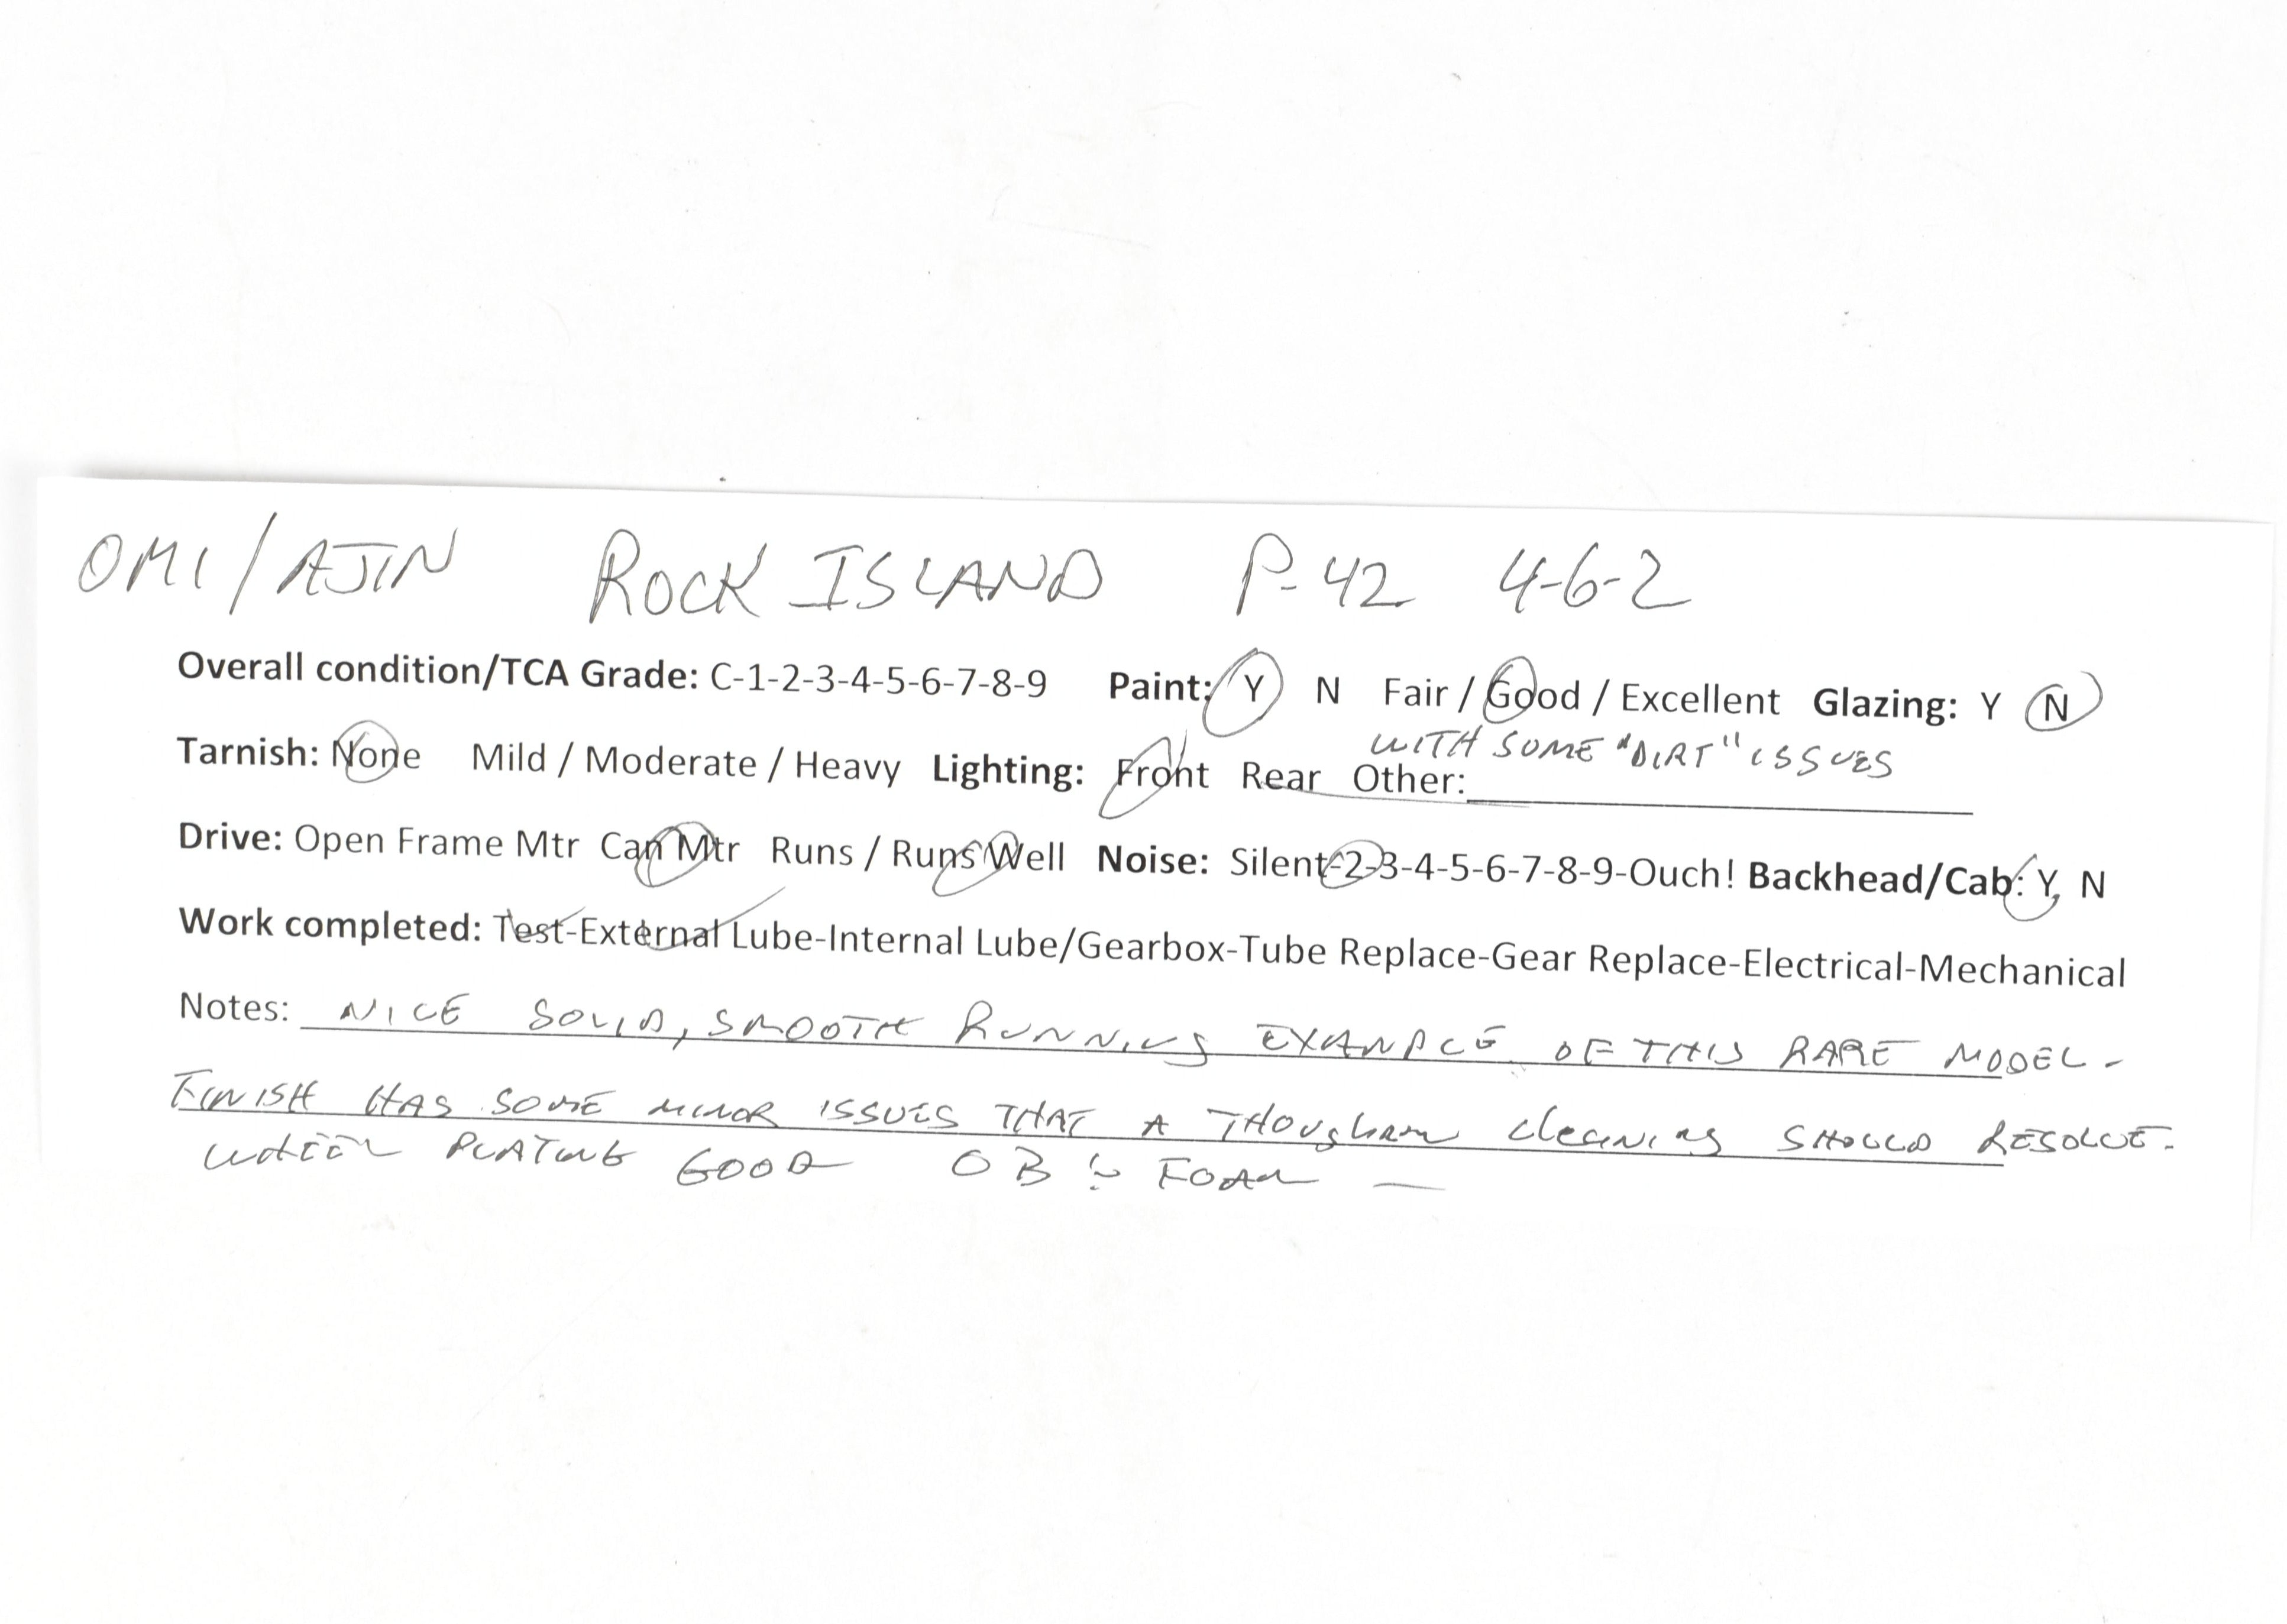 OMI/AJIN ROCK ISLAND P-42 4-6-2
Overall condition/TCA Grade: C-1-2-3-4-5-6-7-8-9 Paint: Y N Fair / Good / Excellent Glazing: Y N
WITH SOME "DIRT" ISSUES
Tarnish: None Mild / Moderate / Heavy Lighting: Front Rear Other:
Drive: Open Frame Mtr Can Mtr Runs / Runs Well Noise: Silent-2-3-4-5-6-7-8-9-Ouch! Backhead/Cab: Y N
Work completed: Test-External Lube-Internal Lube/Gearbox-Tube Replace-Gear Replace-Electrical-Mechanical
Notes: NICE SOLID, SMOOTH RUNNING EXAMPLE OF THIS RARE MODEL -
FINISH HAS SOME MINOR ISSUES THAT A THOUGHRM CLEANING SHOULD RESOLVE.
WHEEL PLATING GOOD OB & FOAM —